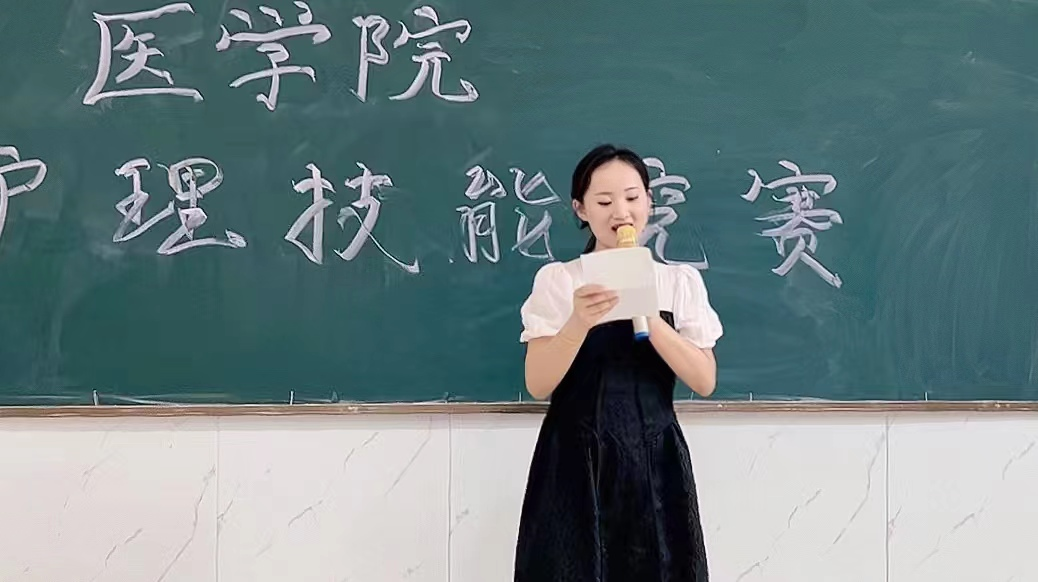 医学院
护理技能竞赛